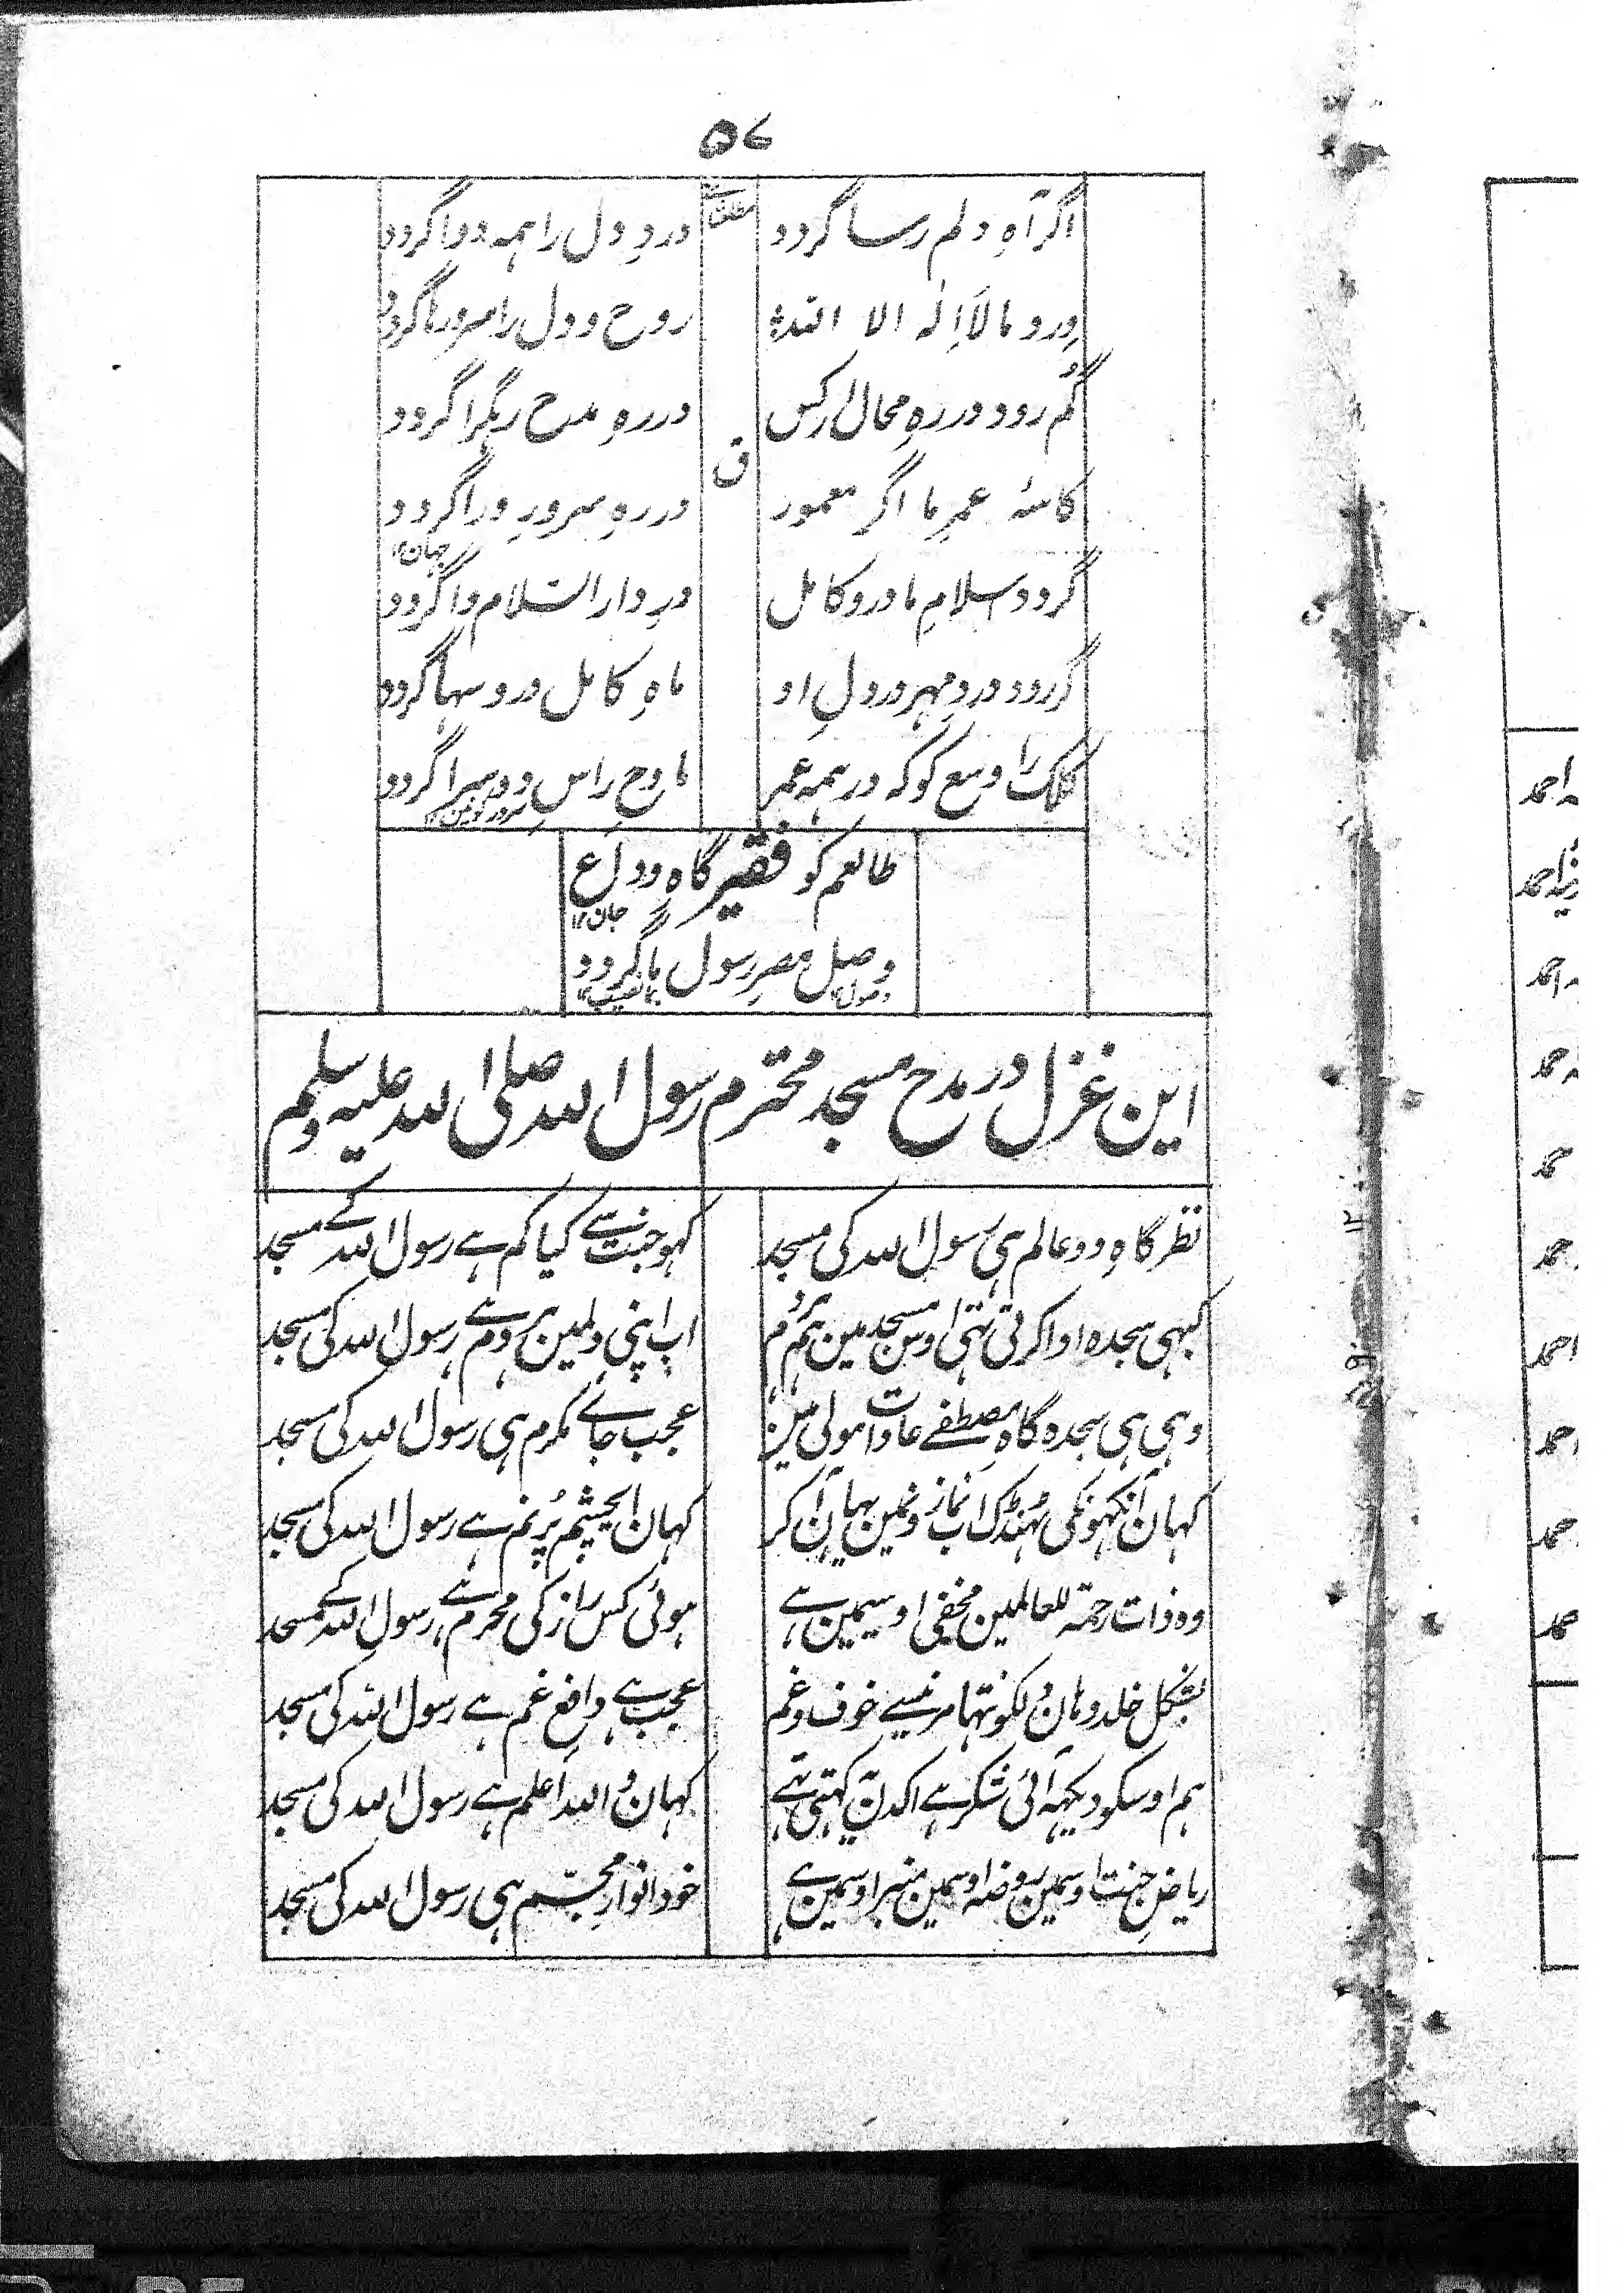 ۵۷
اگر آہِ دلم رسا گردد
دردِ دل را ہمہ دوا گردد
وِردِ ما لَا اِلٰہ الا اللہ
روح و دل را سرور ما گردد
گم رود در رہِ محال ار کس
در رہِ مدح رہگرا گردد
ق
کاسۂ عمرِ ما اگر معمور
در رہِ سرورِ ورا گردد
گردد اسلامِ ما درو کامل
درِ دار السّلام وا گردد
گر رود دردِ مہر در دلِ او
ماہِ کامل درو سہا گردد
کلک را وسع کو کہ در ہمہ عمر
مادحِ راسِ دوسرا گردد
طالعم کو فقیر گاہِ وداع
جان۱۲
وصلِ مصرِ رسول ما گردد
این غزل در مدح مسجد محترم رسول اللہ صلی اللہ علیہ وسلم
نظر گاہِ دو عالم ہی رسول اللہ کی مسجد
کہو جنت سے کیا کم ہے رسول اللہ کے مسجد
کبہی سجدہ ادا کرتی تہی اوس مسجد مین ہم
اب اپنی دلمین ہر دم ہے رسول اللہ کی مسجد
وہی ہی سجدہ گاہِ مصطفے عادات مولی مین
عجب جاے مکرم ہی رسول اللہ کی مسجد
کہان آنکہونکی ٹہنڈک اب نماز ونمین یہان آن کر
کہان ایچشم پُر نم ہے رسول اللہ کی مسجد
وہ ذات رحمۃ للعالمین مخفی اوسیمین ہے
ہوئی کس راز کی محرم ہے رسول اللہ کے مسجد
بشکل خلد وہان دلکو نتہا مرنیسے خوف و غم
عجب ہے دافعِ غم ہے رسول اللہ کی مسجد
ہم اوسکو دیکہہ آئی شکر ہے اکدن کہتی تہے
کہان واللہ اعلم ہے رسول اللہ کی مسجد
ریاضِ جنت اوسمین روضہ اوسمین منبر اوسمین ہے
خود انوارِ مجسّم ہی رسول اللہ کی مسجد